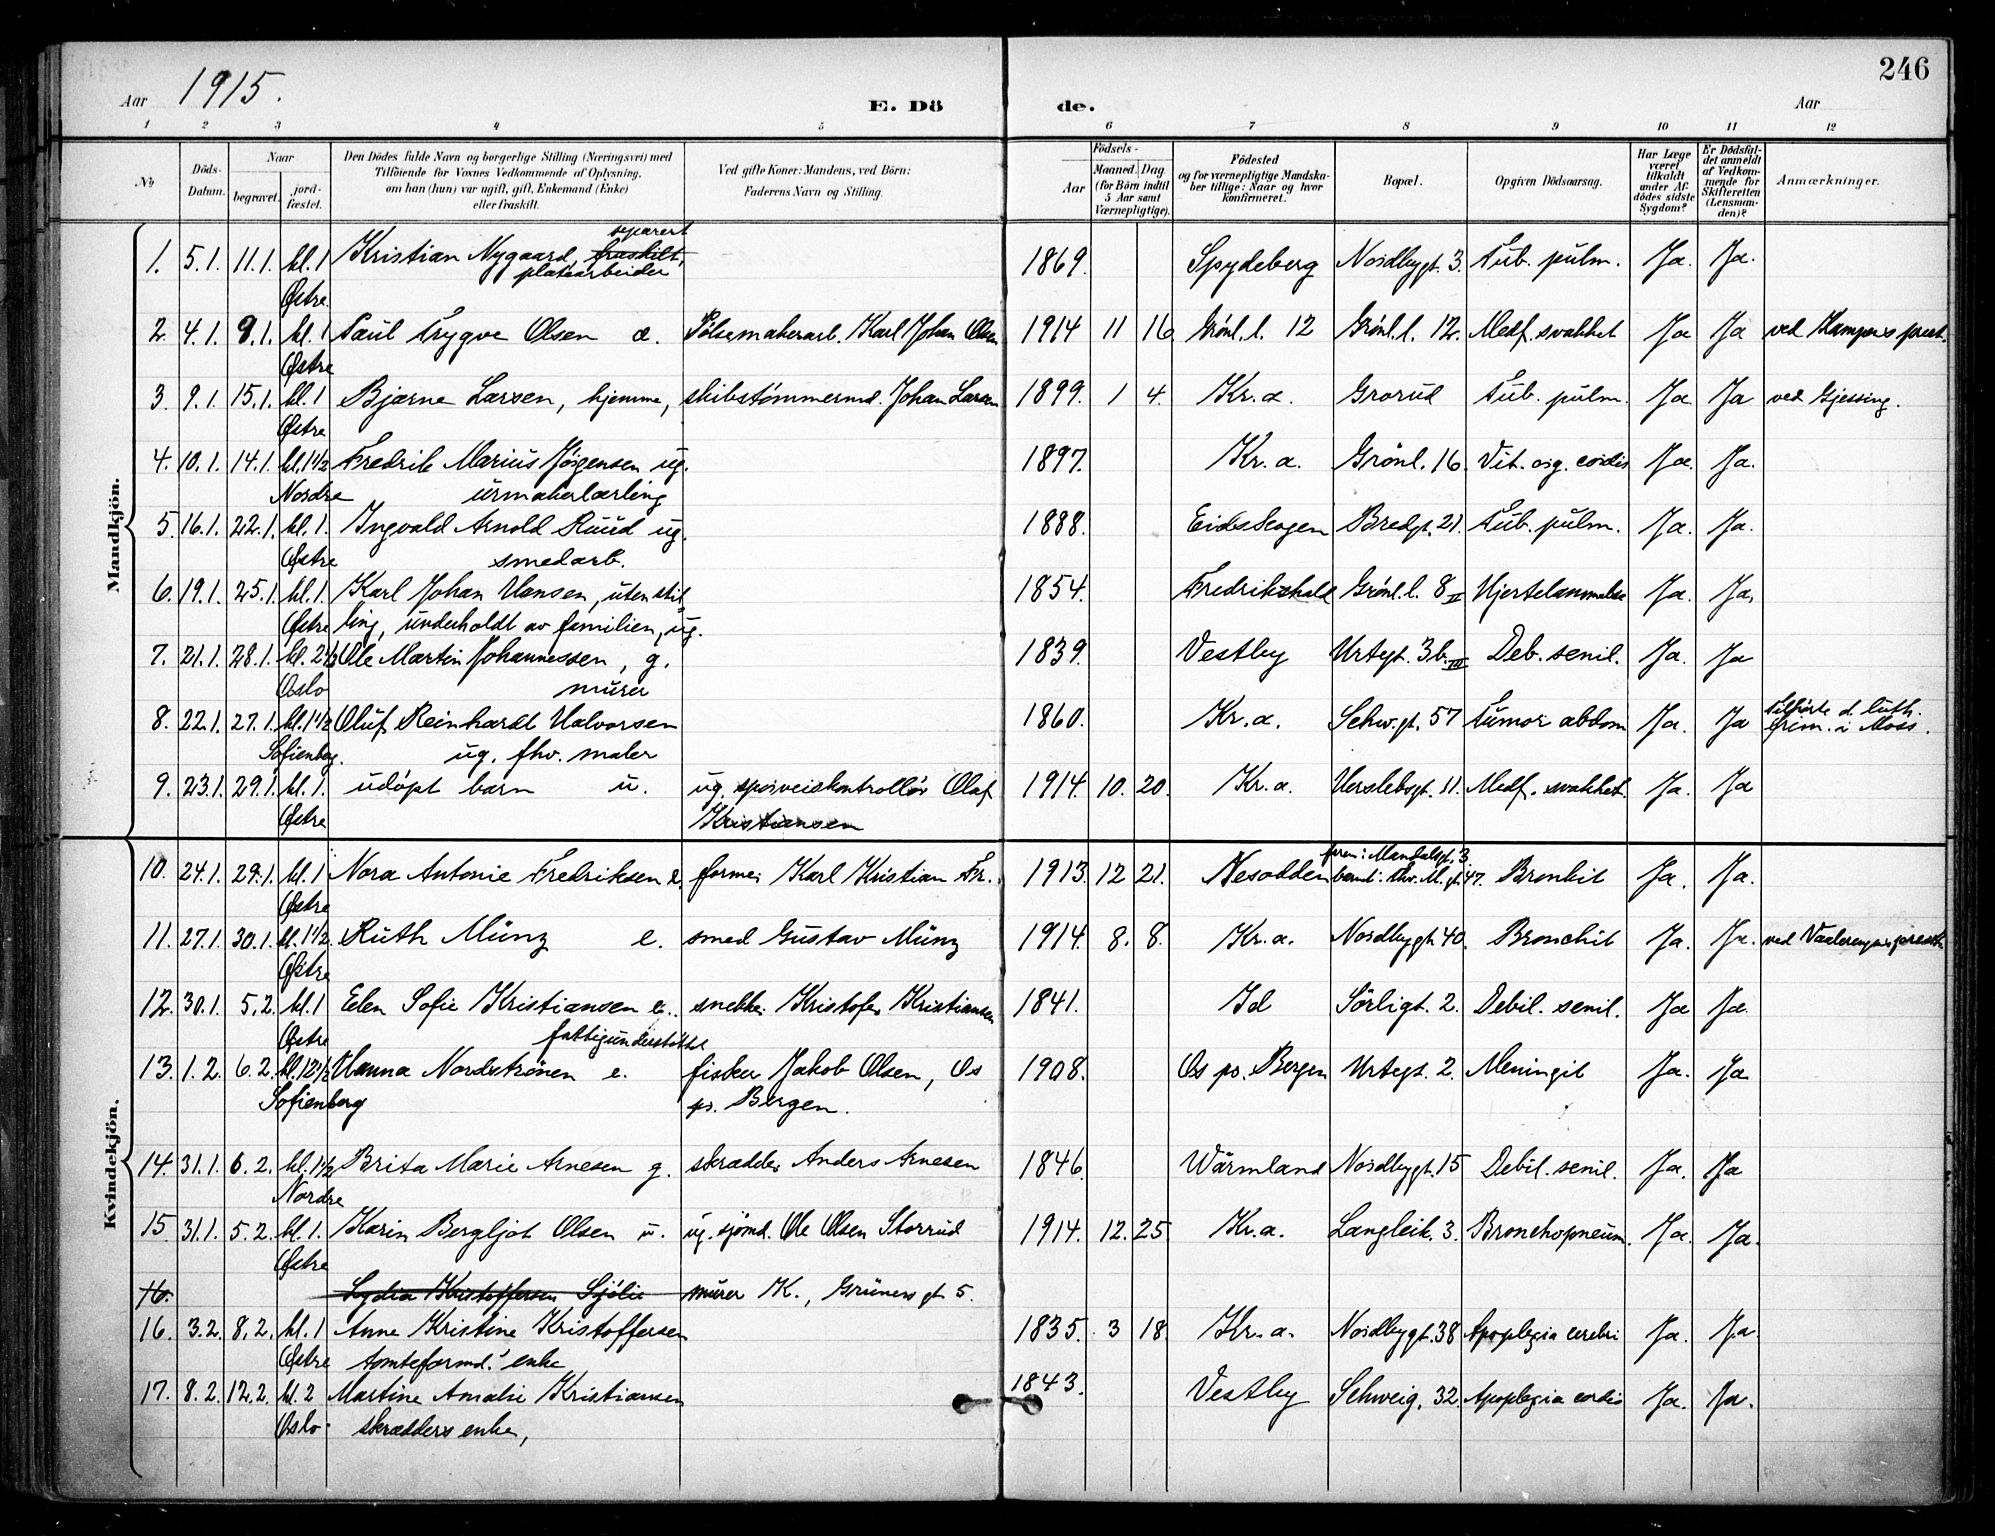 246
Aar 1915. E. Dö de. Aar
1 2 3 4 5 6 7 8 9 10 11 12
No
Döds-Datum.
Naar
begravet.
jord-fæstet.
Den Dödes fulde Navn og borgerlige Stilling (Næringsvei) med
Tilföiende for Voxnes Vedkommende af Oplysning,
om han (hun) var ugift, gift, Enkemand (Enke)
eller fraskilt.
Ved gifte Koner: Mandens, ved Börn:
Faderens Navn og Stilling.
Födsels-
Aar
Maaned. Dag
(for Börn indtil
5 Aar samt
Værnepligtige).
Födested
og for værnepligtige Mandska-
ber tillige: Naar og hvor
konfirmeret.
Bopæl.
Opgiven Dödsaarsag.
Har Læge
været
tilkaldt
under Af-
dödes sidste
Sygdom?
Er Dödsfal-
det anmeldt
af Vedkom-
mende for
Skifteretten
(Lensman-
den)?
Anmærkninger.
Mandkjön.
separert
1. 5.1. 11.1. kl. 1 Kristian Nygaard, fraskilt, 1869. Spydeberg Nordbygt. 3. Tub. pulm. Ja. Ja.
Østre platearbeider
2. 4.1. 9.1. kl. 1 Paul Trygve Olsen æ. Pölsemakerarb. Karl Johan Olsen 1914 11 16 Grönl.l. 12 Grönl.l. 12. Medf. svakhet Ja Ja ved Kampens prest.
Østre
3. 9.1. 15.1. kl. 1 Bjarne Larsen, hjemme, skibstömmermd. Johan Larsen 1899. 1 4. Kr.a. Grorud Tub. pulm. Ja Ja ved Gjessing.
Østre
4. 10.1. 14.1. kl. 1 1/2 Fredrik Marius Jörgensen ug. 1897. Kr.a. Grönl. 16. Vit. org. cordis Ja. Ja.
Nordre urmakerlærling
5. 16.1. 22.1. kl. 1. Ingvald Arnold Ruud ug. 1888. Eidsskogen Bredgt. 21. Tub. pulm. Ja. Ja.
Østre smedarb.
6. 19.1. 25.1. kl. 1. Karl Johan Hansen, uten stil 1854. Fredrikshald Grönl.l. 8 II Hjertelammelse Ja. Ja.
Østre ling, underholdt av familien, ug.
7. 21.1. 28.1. kl. 2 1/2 Ole Martin Johannessen, g. 1839. Vestby Urtegt. 3b. III Deb. senil. Ja. Ja
Oslo murer
8. 22.1. 27.1. kl. 1 1/2 Oluf Reinhardt Halvorsen 1860. Kr.a. Schw.gt. 57 Tumor abdom Ja. Ja tilhörte d. luth. frim. i Moss.
Sofienberg. ug. fhv. maler
9. 23.1. 29.1. kl. 1. udöpt barn u. ug. sporveiskontrollör Olaf 1914. 10. 20. Kr.a. Herslebsgt. 11. Medf. svakhet. Ja. Ja
Østre Kristiansen
Kvindekjön.
frem: Mandalsgt. 3.
10. 24.1. 29.1. kl. 1 Nora Antonie Fredriksen e. former Karl Kristian Fr. 1913. 12 21. Nesodden M.gt. 47. Bronkit Ja. Ja.
Østre
11. 27.1. 30.1. kl. 1 1/2 Ruth Münz e. smed Gustav Münz 1914. 8. 8. Kr.a. Nordbygt. 40. Bronchit Ja. Ja. ved Vaalerengens prest
Østre
12. 30.1. 5.2. kl. 1 Elen Sofie Kristiansen e. snekker Kristofer Kristiansen 1841. Id Sörligt. 2. Debil. senil. Ja Ja.
Østre fattigunderstöttet
13. 1.2. 6.2. kl. 12 1/2 Hanna Nordströnen e. fisker Jakob Olsen, Os 1908. Os pr. Bergen Urtegt. 2. Meningit Ja. Ja
Sofienberg pr. Bergen.
14. 31.1. 6.2. kl. 1 1/2 Brita Marie Arnesen g. skrædder Anders Arnesen 1846. Wärmland Nordbygt. 15 Debil. senil. Ja. Ja
Nordre
15 31.1. 5.2. kl. 1. Karin Bergljot Olsen u. ug. sjömd. Ole Olsen Storrud 1914. 12. 25 Kr.a. Langleik. 3. Bronchopneum. Ja. Ja.
Østre
16. Lydia Kristoffersen Sjölie murer K., Grüners gt 5.
16. 3.2. 8.2. kl. 1 Anne Kristine Kristoffersen 1835. 3 18. Kr.a. Nordbygt. 38 Apoplegia cerebri Ja. Ja.
Østre tomteformd.' enke
17. 8.2. 12.2. kl. 2 Martine Amalie Kristiansen 1843. Vestby Schweig. 32. Apoplegia cordis Ja. Ja.
Oslo skrædders enke,